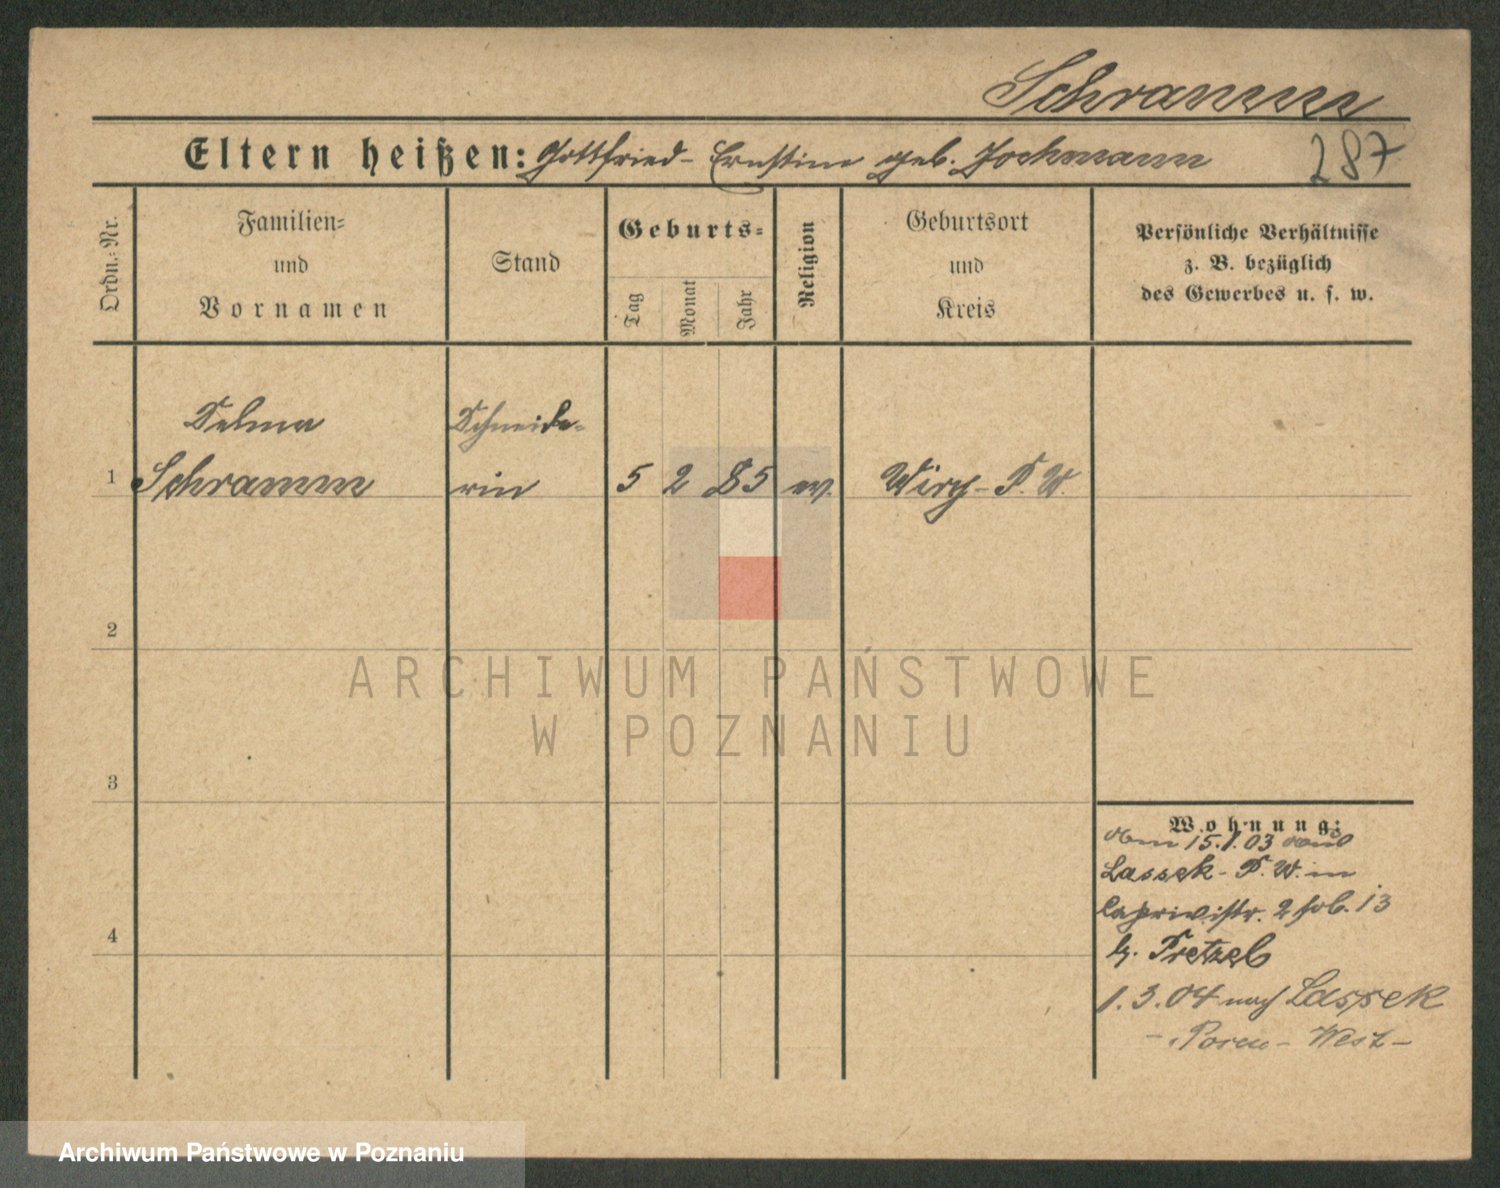 Schramm
Eltern heißen: Gottfried - Ernstine geb. Jockmann
287
Ordn.-Nr.
Familien-
und
Vornamen
Stand
Geburts-
Tag
Monat
Jahr
Religion
Geburtsort
und
Kreis
Persönliche Verhältnisse
z. B. bezüglich
des Gewerbes u. s. w.
Selma
Schneide-
1 Schramm rin 5 2 85 ev. Wiry - P. W.
2
ARCHIWUM PAŃSTWOWE
W POZNANIU
3
Wohnung:
vom 15.1.03
Lassek - P. W. in
Caprivistr. 2 13
b. Pretzel
4
1.3.04 nach Lassek
- Posen - West -
Archiwum Państwowe w Poznaniu